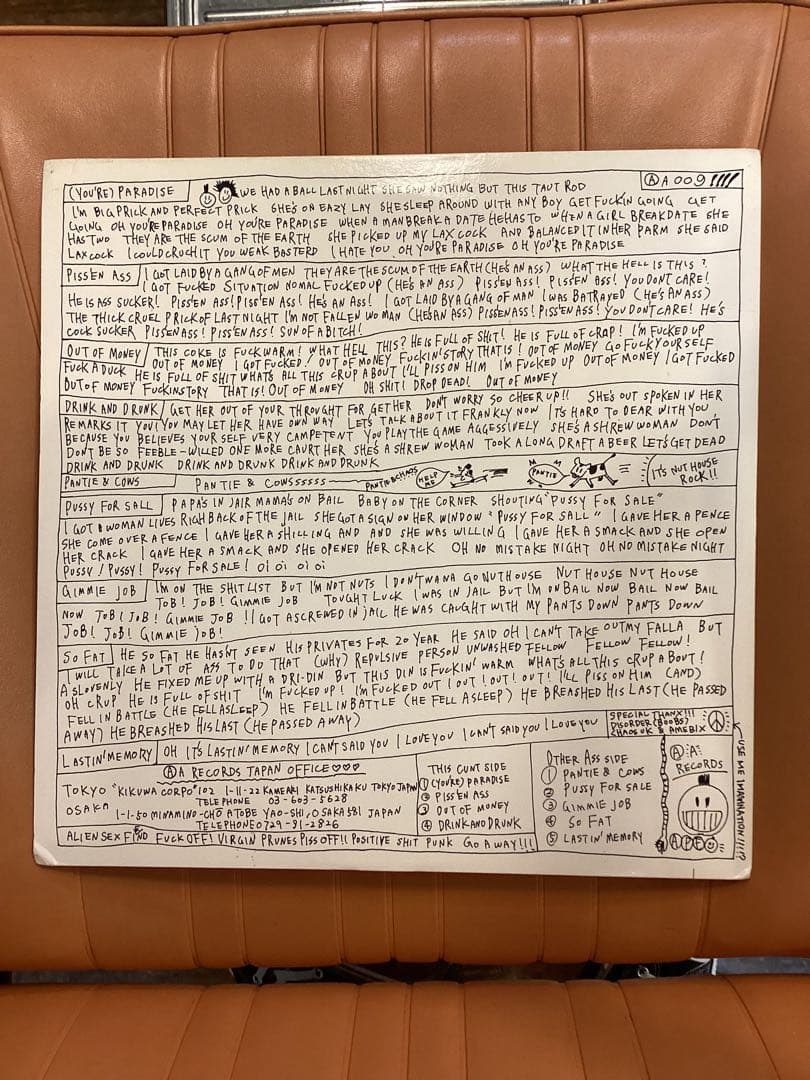 (YOU'RE) PARADISE WE HAD A BALL LAST NIGHT SHE SAW NOTHING BUT THIS TAUT ROD
Ⓐ A 009 !!!!
I'M BIG PRICK AND PERFECT PRICK SHE'S ON EAZY LAY SHE SLEEP AROUND WITH ANY BOY GET FUCKIN GOING GET
GOING OH YOU'RE PARADISE OH YOU'RE PARADISE WHEN A MAN BREAK A DATE HE HAS TO WHEN A GIRL BREAK DATE SHE
HAS TWO THEY ARE THE SCUM OF THE EARTH SHE PICKED UP MY LAX COCK AND BALANCED IT IN HER PARM SHE SAID
LAX COCK I COULD CRUCH IT YOU WEAK BASTERD I HATE YOU OH YOU'RE PARADISE OH YOU'RE PARADISE
PISS'EN ASS I GOT LAID BY A GANG OF MEN THEY ARE THE SCUM OF THE EARTH (HE'S AN ASS) WHAT THE HELL IS THIS?
I GOT FUCKED SITUATION NOMAL FUCKED UP (HE'S AN ASS) PISS'EN ASS! PISS'EN ASS! YOU DONT CARE!
HE IS ASS SUCKER! PISS'EN ASS! PISS'EN ASS! HE'S AN ASS! I GOT LAID BY A GANG OF MAN I WAS BATRAYED (HE'S AN ASS)
THE THICK CRUEL PRICK OF LAST NIGHT I'M NOT FALLEN WOMAN (HE'S AN ASS) PISS'EN ASS! PISS'EN ASS! YOU DON'T CARE! HE'S
COCK SUCKER PISS'EN ASS! PISS'EN ASS! SUN OF A BITCH!
OUT OF MONEY THIS COKE IS FUCK WARM! WHAT HELL THIS? HE IS FULL OF SHIT! HE IS FULL OF CRAP! I'M FUCKED UP
OUT OF MONEY I GOT FUCKED! OUT OF MONEY FUCKIN' STORY THAT IS! OUT OF MONEY GO FUCK YOURSELF
FUCK A DUCK HE IS FULL OF SHIT WHATS ALL THIS CRUP ABOUT I'LL PISS ON HIM I'M FUCKED UP OUT OF MONEY I GOT FUCKED
OUT OF MONEY FUCKIN STORY THAT IS! OUT OF MONEY OH SHIT! DROP DEAD! OUT OF MONEY
DRINK AND DRUNK GET HER OUT OF YOUR THROUGHT FOR GET HER DON'T WORRY SO CHEER UP!! SHE'S OUT SPOKEN IN HER
REMARKS IT YOU! YOU MAY LET HER HAVE OWN WAY LET'S TALK ABOUT IT FRANKLY NOW IT'S HARD TO DEAR WITH YOU
BECAUSE YOU BELIEVES YOUR SELF VERY COMPETENT YOU PLAY THE GAME AGGESSIVELY SHE'S A SHREW WOMAN DON'T
DON'T BE SO FEEBLE-WILLED ONE MORE CAURT HER SHE'S A SHREW WOMAN TOOK A LONG DRAFT A BEER LET'S GET DEAD
DRINK AND DRUNK DRINK AND DRUNK DRINK AND DRUNK
PANTIE & COWS PANTIE & COWSSSSSS PANTIE & CHAOS HELP ME PANTIE IT'S NUT HOUSE ROCK!!
PUSSY FOR SALL PAPA'S IN JAIR MAMA'S ON BAIL BABY ON THE CORNER SHOUTING "PUSSY FOR SALE"
I GOT A WOMAN LIVES RIGH BACK OF THE JAIL SHE GOT A SIGN ON HER WINDOW "PUSSY FOR SALL" I GAVE HER A PENCE
SHE COME OVER A FENCE I GAVE HER A SHILLING AND AND SHE WAS WILLING I GAVE HER A SMACK AND SHE OPEN
HER CRACK I GAVE HER A SMACK AND SHE OPENED HER CRACK OH NO MISTAKE NIGHT OH NO MISTAKE NIGHT
PUSSY! PUSSY! PUSSY FOR SALE! OI OI OI OI
GIMMIE JOB I'M ON THE SHIT LIST BUT I'M NOT NUTS I DON'T WANA GO NUTHOUSE NUT HOUSE NUT HOUSE
JOB! JOB! GIMMIE JOB TOUGHT LUCK I WAS IN JAIL BUT I'M ON BAIL NOW BAIL NOW BAIL
NOW JOB! JOB! GIMMIE JOB !! GOT A SCREWED IN JAIL HE WAS CAUGHT WITH MY PANTS DOWN PANTS DOWN
JOB! JOB! GIMMIE JOB!
SO FAT HE SO FAT HE HASN'T SEEN HIS PRIVATES FOR 20 YEAR HE SAID OH I CAN'T TAKE OUT MY FALLA BUT
I WILL TAKE A LOT OF ASS TO DO THAT (WHY) REPULSIVE PERSON UNWASHED FELLOW FELLOW FELLOW!
A SLOVENLY HE FIXED ME UP WITH A DRI-DIN BUT THIS DIN IS FUCKIN' WARM WHAT'S ALL THIS CRUP ABOUT!
OH CRUP HE IS FULL OF SHIT I'M FUCKED UP! I'M FUCKED OUT! OUT! OUT! OUT! I'LL PISS ON HIM (AND)
FELL IN BATTLE (HE FELL ASLEEP) HE FELL IN BATTLE (HE FELL ASLEEP) HE BREASHED HIS LAST (HE PASSED
AWAY) HE BREASHED HIS LAST (HE PASSED AWAY)
SPECIAL THANX!!!
DISORDER (BOOBS)
CHAOS UK & AMEBIX
LASTIN' MEMORY OH IT'S LASTIN' MEMORY I CAN'T SAID YOU I LOVE YOU I CAN'T SAID YOU I LOVE YOU
Ⓐ A RECORDS JAPAN OFFICE ♡♡♡
TOKYO "KIKUWA CORPO" 102 1-11-22 KAMEARI KATSUSHIKAKU TOKYO JAPAN
TELEPHONE 03-603-5628
OSAKA 1-1-50 MINAMINO-CHO ATOBE YAO-SHI, OSAKA 581 JAPAN
TELEPHONE 0729-91-2826
THIS CUNT SIDE
① (YOU'RE) PARADISE
② PISS'EN ASS
③ OUT OF MONEY
④ DRINK AND DRUNK
OTHER ASS SIDE
① PANTIE & COWS
② PUSSY FOR SALE
③ GIMMIE JOB
④ SO FAT
⑤ LASTIN' MEMORY
Ⓐ A RECORDS
APE
USE ME IMANINATION!!!!?
ALIEN SEX FIND FUCK OFF! VIRGIN PRUNES PISS OFF!! POSITIVE SHIT PUNK GO AWAY!!!